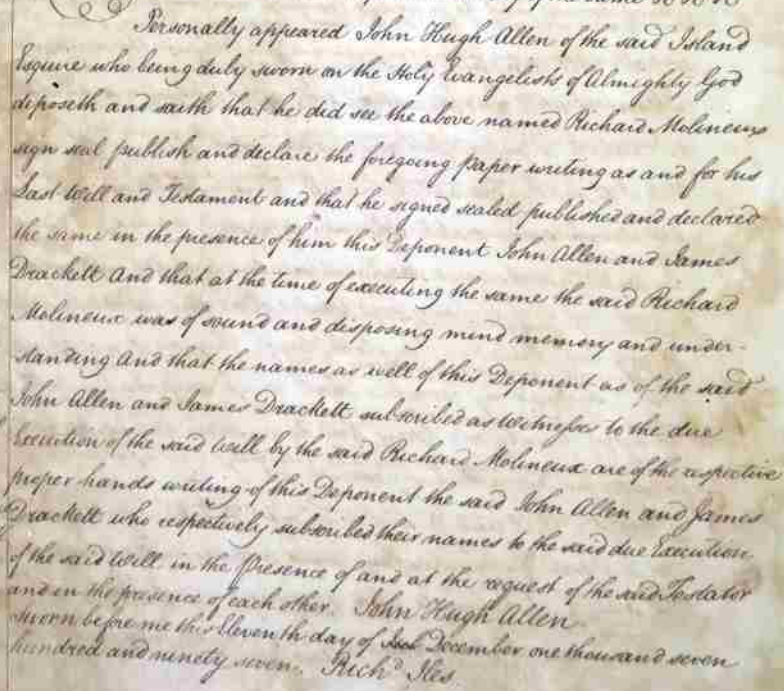 Personally appeared John Hugh Allen of the said Island
Esquire who being duly sworn on the Holy Evangelists of Almighty God
deposeth and saith that he did see the above named Richard Molineux
sign seal publish and declare the foregoing paper writing as and for his
Last Will and Testament and that he signed sealed published and declared
the same in the presence of him this Deponent John Allen and James
Drackett And that at the time of executing the same the said Richard
Molineux was of sound and disposing mind memory and under-
standing And that the names as well of this Deponent as of the said
John Allen and James Drackett subscribed as Witnesses to the due
Execution of the said Will by the said Richard Molineux are of the respective
proper hands writing of this Deponent the said John Allen and James
Drackett who respectively subscribed their names to the said due Execution
of the said Will in the Presence of and at the request of the said Testator
and in the presence of each other. John Hugh Allen
Sworn before me this Eleventh day of December one thousand seven
hundred and ninety seven. Richd Iles